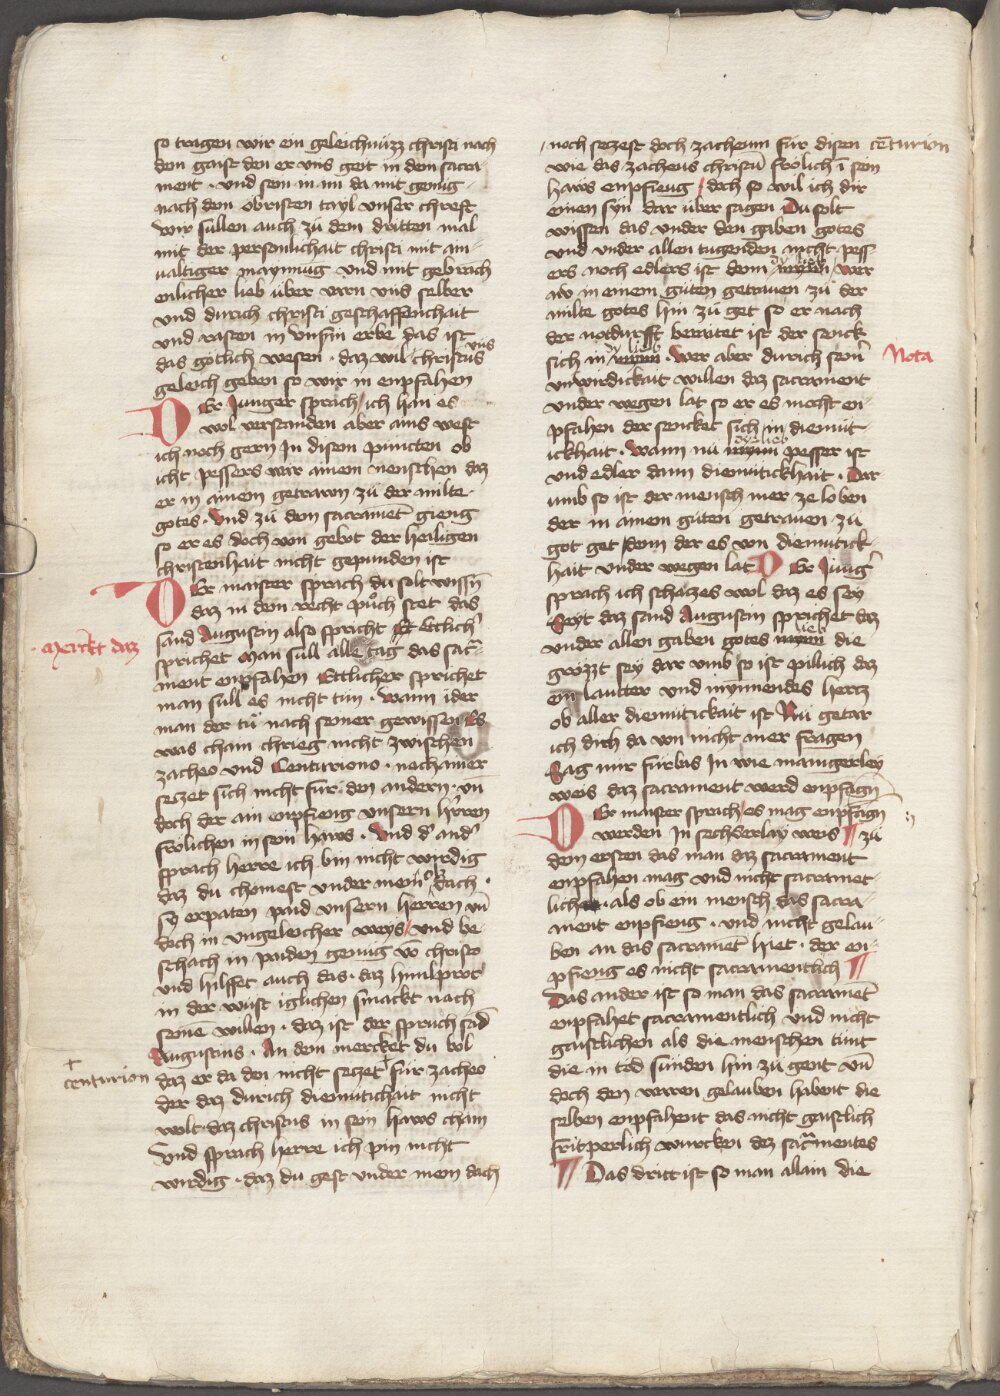 so tragen wir ein geleichnüzz christi nach
dem gaist den er vns geit in dem sacra
ment · vnd sein main da mit genüg
nach dem obristen tayl vnser chreft
wir süllen auch zü dem dritten mal
mit der persondlichait christi mit ain
ualtiger maynnug vnd mit gebrüch
enlicher lieb über varn vns selber
vnd durich christi geschaffenhait
vnd rasten in vnsm erbe das ist
das götlich wesen · daz wil christus vns
geleich geben so wir in enpfahen
DEr Junger sprach / ich han es
wol verstanden aber ains west
ich noch gern In disem puncten ob
icht pessers wär ainem menschen daz
er in ainem getrawn zü der milte
gotes · Vnd zü dem sacramēt gieng
so er es doch von gebot der heiligen
christenhait nicht gepunden ist
DEr maister sprach du solt wissn
daz in dem recht püch stet das
sand Augustin also spricht Et Etlich
sprichet Man süll alle tag das sac
ment enpfahen Ettlicher sprichet
man süll es nicht tün · wann ider
man der tü nach seiner gewissen Es
was cham chrieg nicht zwischen
zacheo vnd Centuriono · nechainer
setzet sich nicht für den andern · vn
doch der ain enpfieng vnsern herren
frölichen in sein haws · Vnd d' and'
sprach herre ich bin nicht wirdig
daz du chömest vnder mein dach ·
sy erpaten paid vnsern herren vn
doch in vngeleicher weys / vnd be
schach in paiden genüg vō christo
vnd hilffet auch das · daz himlprot
in der wüst iglichen smackt nach
seine willen · daz ist der spruch sād
Augustins · An dem mercket du wol
daz er da den nicht setzet + für zacheo
der daz durich diemütichait nicht
wolt · daz christus in sein haws cham
Vnd sprach herre ich pin nicht
wirdig · daz du gest vnder mein dach
· merkt daz
+
centurion
/ noch setzest doch zacheum für disen cēturion
wie das zacheus christū frölich ī sein
haws enpfieng / doch so wil ich dir
einen syn dar über sagen Du solt
wissen das vnder den gaben gotes
vnd vnder allen tugenden nicht pess
ers noch edlers ist denn / wer
aw in einem güten getrauen zü der
milte gotes hin zü get so er nach
der notdurfft beraitet ist der senck
sich in lieb · Wer aber durich sein
vnwirdickait willen daz sacrament
vnder wegen lat so er es mocht en
pfahen der sencket sich in diemüt
ickhait · Wann nü pesser ist
vnd edler dann diemütickhait · Dar
umb so ist der mensch mer ze loben
der in ainem güten getrauen zü
got get denn der es von diemütick
hait vnder wegen lat DEr Jung
sprach ich schätzes wol daz es sey
Seyt daz sand Augustin sprichet daz
vnder allen gaben gotes lieb die
gröpzt sey dar vmb so ist pillich daz
ein lautter vnd mynnendes hertz
ob aller diemütickait ist Nü getar
ich dich da von nicht mer fragen
Sag mir fürbas In wie manigerley
weis daz sacrament werd enpfagn
DEr maister sprach / es mag enpfagn
werden In sechserlay weis ¶ zü
dem ersten das man daz sacrament
enpfahen mag vnd nicht sacramet
lich · als ob ein mensch das sacra
ment enpfieng · vnd nicht gelau
ben an das sacramēt hiet · der en
pfieng es nicht sacramentlich ¶
Das ander ist so man das sacramēt
enpfahet sacramentlich vnd nicht
gaistlichen als die menschen tünt
die in töd sünden hin zü gent vn
doch den waren gelauben habent die
selben enpfahent das nicht gaistlich
fritperlich würcken dez sacmentes
¶ Das dritt ist so man allain die
Nota